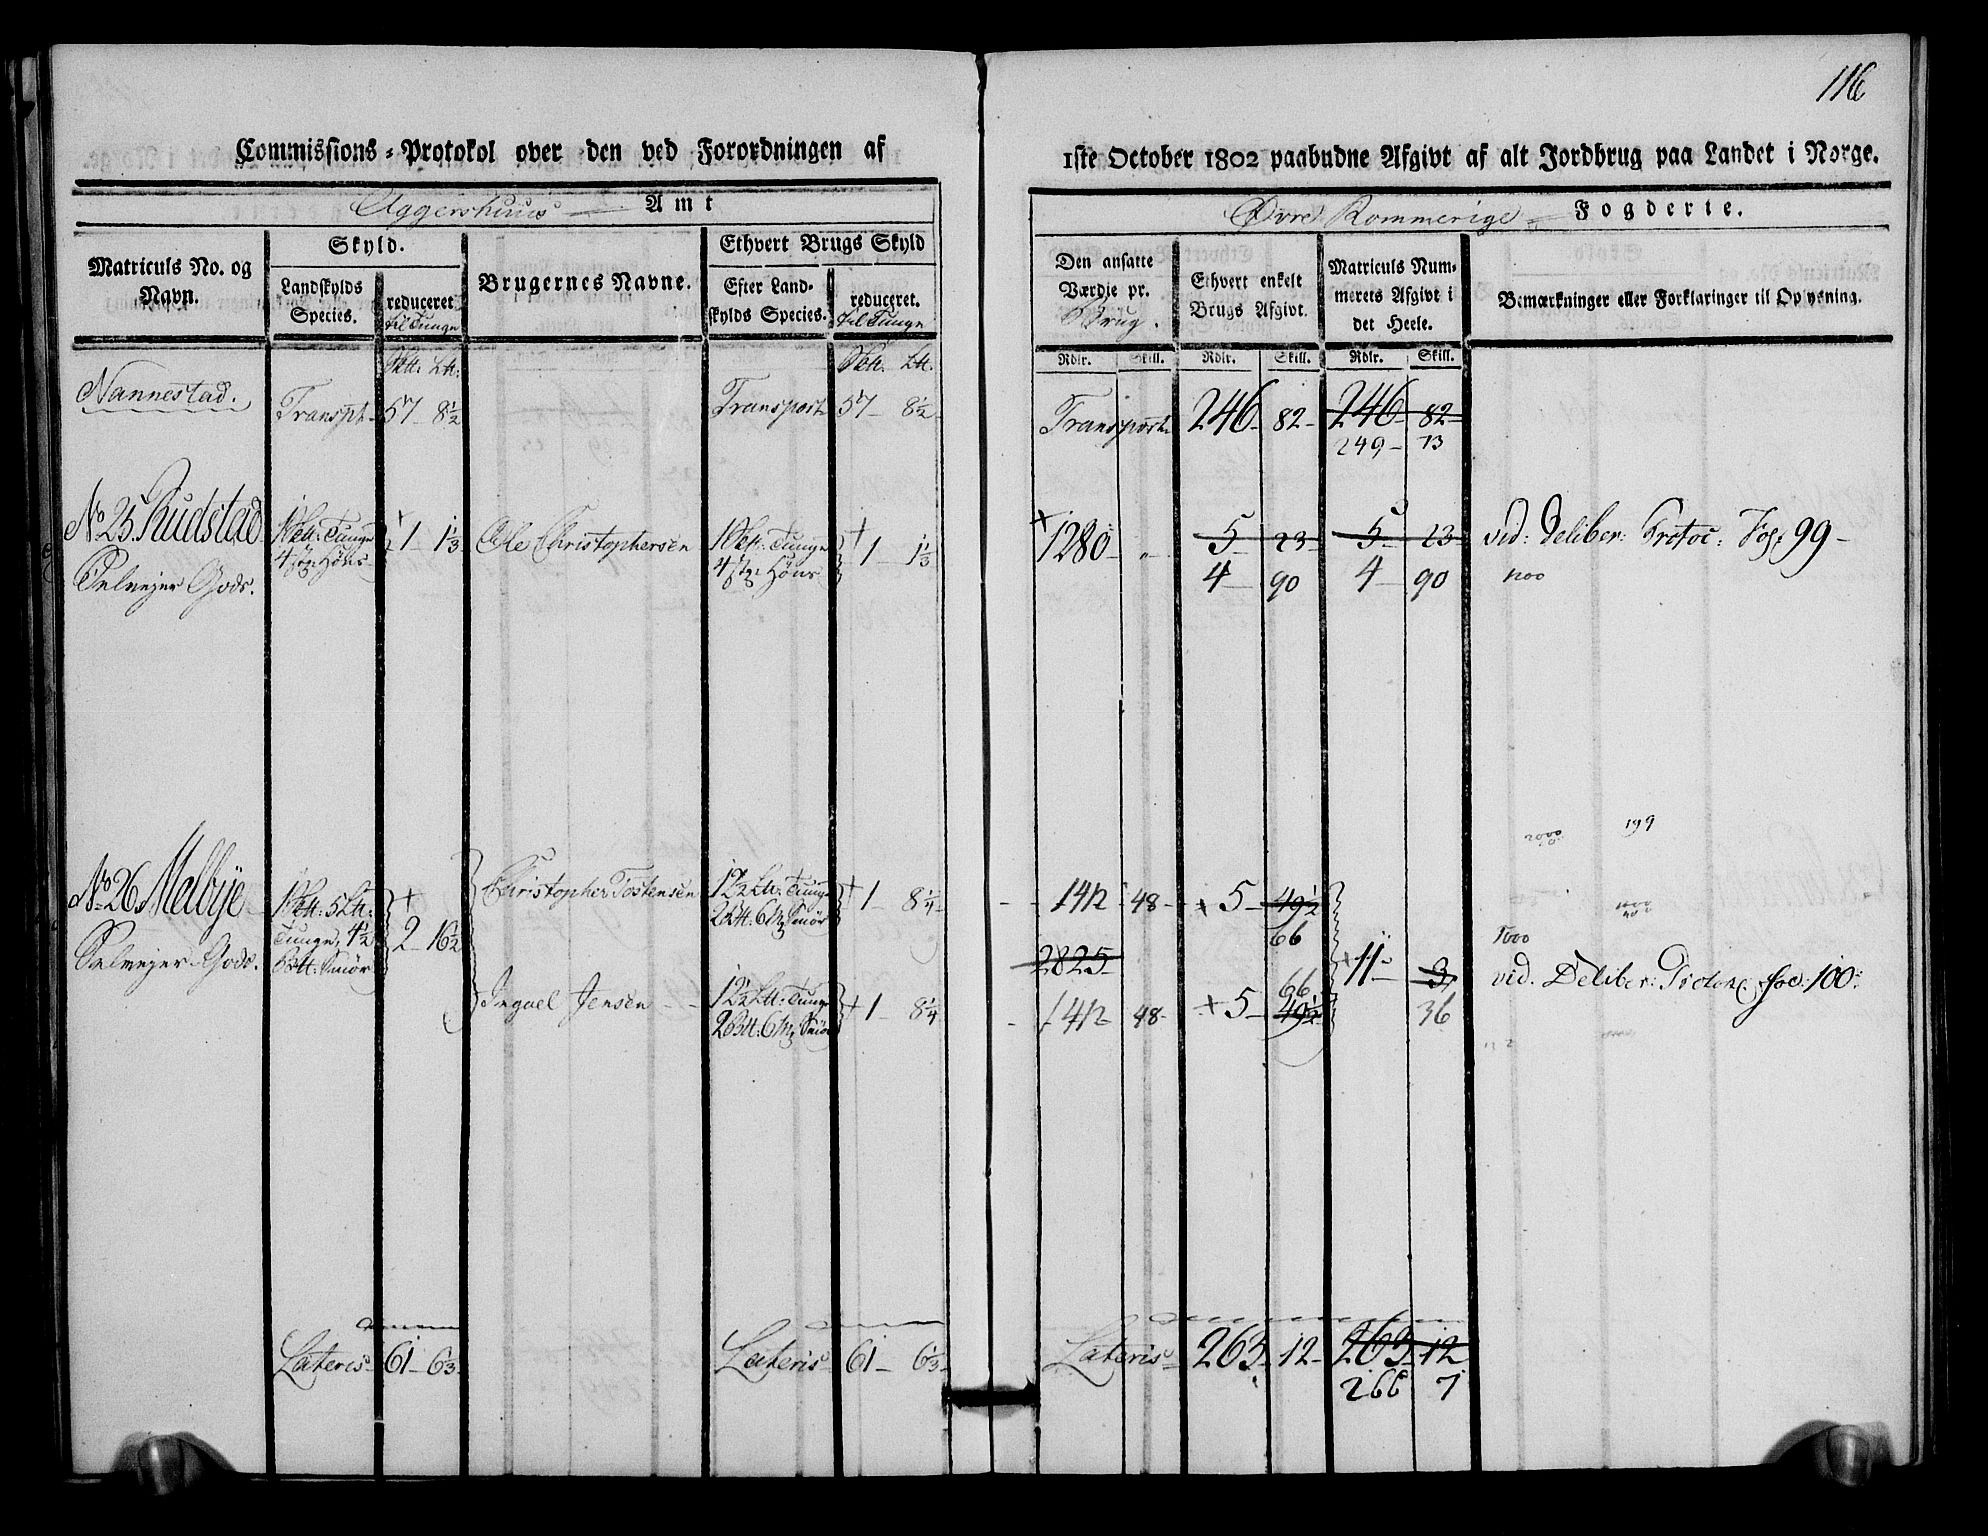 116
Commissions-Protokol over den ved Forordningen af
1ste October 1802 paabudne Afgivt af alt Jordbrug paa Landet i Norge.
Aggershuus Amt
Øvre Rommerige Fogderie.
Matriculs No. og Navn.
Skyld.
Landskylds Species.
reduceret til Tunge
Brugernes Navne.
Ethvert Brugs Skyld
Efter Landskylds Species.
reduceret. til Tunge
Den ansatte Værdje pr. Brug.
Ethvert enkelt Brugs Afgivt.
Matriculs Nummerets Afgivt i det Heele.
Bemærkninger eller Forklaringer til Oplysning.
Rdlr. Skill. Rdlr. Skill. Rdlr. Skill.
Nannestad.
Transpt. 57 - 8½
Transport 57 - 8½
Transport 246 - 82 - 246 - 82 -
249 - 73
No 25. Rudstad
1 Tunge + 1 - 1⅓ Ole Christophersen 1 Tunge + 1 - 1⅓
4 Høns
4 Høns
Gods.
+ 1280 - „ - 5 - 23 - 5 - 23 vid: Deliber: Protoc: Fol: 99 -
4 - 90 4 - 90
No 26. Melbye
5 Lt: Tunge, 4½ Smør + 2 - 16½
Gods.
Christopher Tostensen 12½ Lt: Tunge 6 Smør + 1 - 8¼
Ingvel Jensen 12½ Lt: Tunge 6 Smør + 1 - 8¼
1412 - 48 - + 5 - 49½
66
2825 - + 11 - 3
66
1412 - 48 - + 5 - 49½
36
2000 199
1000
vid. Deliber: Fol: 100:
Lateris 61 - 6⅓
Lateris 61 - 6⅓
Lateris 263 - 12 - 263 - 12
266 7